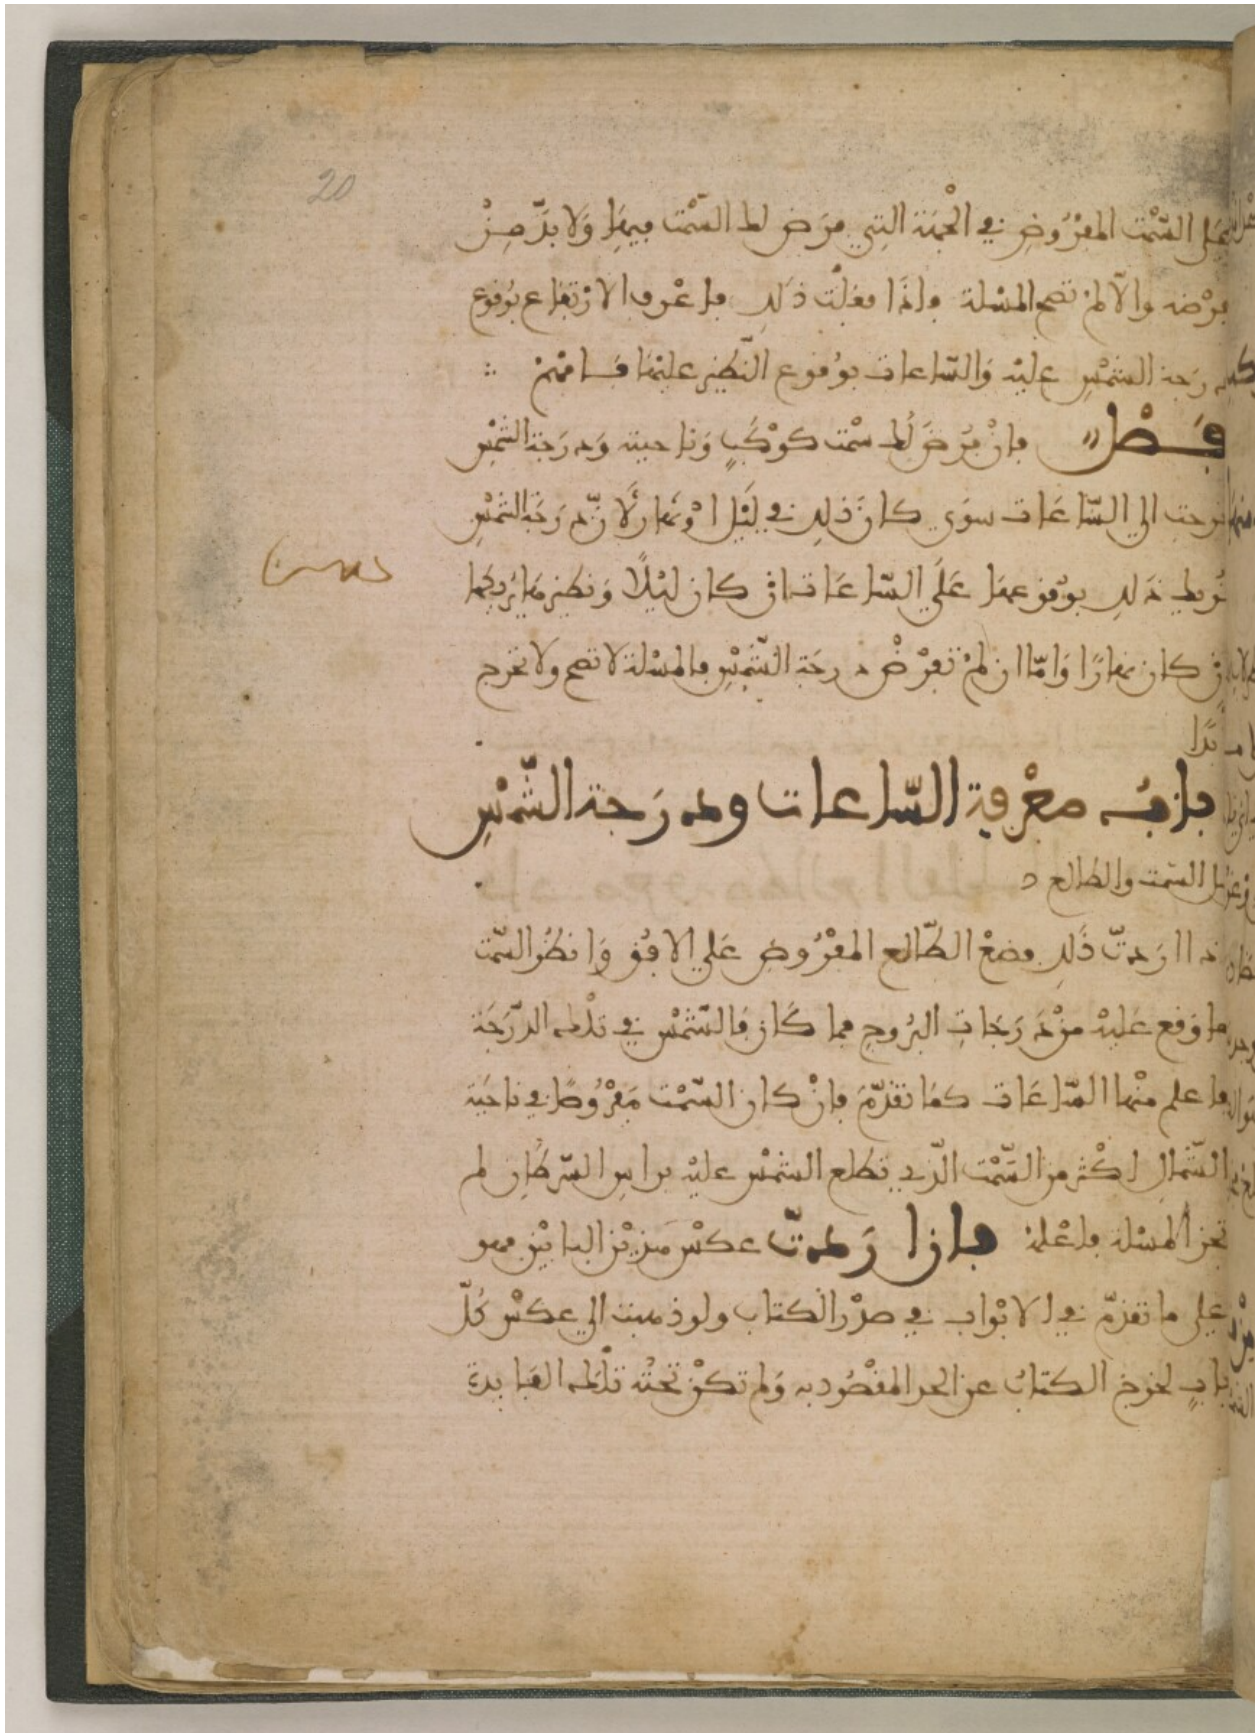 20
على السَّمْت المفرُوضِ في الْجهَة التِي فرَض لك السَّمْت فيهَا وَلَا بدَّ مِنْ
فرْضه والّا لمْ تصح المسْلة فإذَا فعلْت ذَلك فاعْرف الارْتفاع بوُقوع
درَجة الشمْسِ عليْه وَالسّاعات بوُقوع النّظيْر عليْهَا فافهمْ
فَصْل فإنْ فرُضَ لَك سمْت كوْكَبٍ وَناحيته وَدرَجة الشمْسِ
وَاحتجت الي السّاعَات سوَي كانَ ذَلك في ليْل اوْ نهَار لَانّ درَجَة الشمْسِ
تُريك ذَلك بوُقوعهَا عَلَي السّاعَات انْ كان ليْلًا وَنظيْرهَا يُريكهَا
انْ كان نهَارًا وَامّا ان لمْ تفرْضْ درجَة الشّمْسِ فالمسْلة لا تصح ولا تخرج
ابَدًا
بابُ معْرفة السّاعات ودرَجة الشّمْسِ
من قبل السّمت والطالع
اذا ارَدتّ ذَلك فضعْ الطّالع المفْرُوض عَلي الافُق وَانظُر السّمْت
ما وَقع عَليْه منْ دَرَجَاتِ البرُوج فما كَان فَالشّمْس في تلْك الدّرَجَة
فاعلم منْها السّاعَات كمَا تقدّمَ فإنْ كان السّمْت مَفرُوضًا في ناحيَة
الشّمَالِ اكْثر من السَّمْت الّذي تطلع الشمْس عليْه براسِ السّرطَانِ لم
تجز المسْلة فاعْلمْ فإذا ارَدتّ عكْس هَذيْن البابيْن فهو
علي ما تقدّم في الابْواب في صدْر الكتاب ولو ذهبت الي عكْس كُلّ
بابٍ لخرَج الكتابُ عن الحد المقْصُود به وَلم تكنْ تحْته تلْك الفَايدة